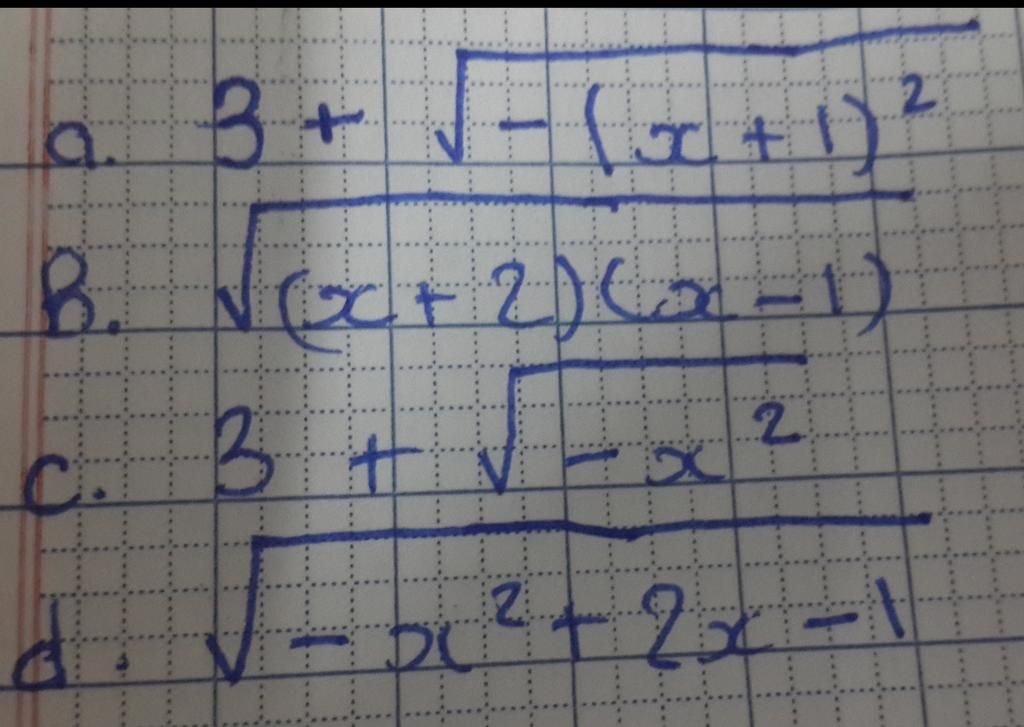 a. 3 + √-(x+1)²
B. √(x+2)(x-1)
c. 3 + √-x²
d. √-x²+2x-1